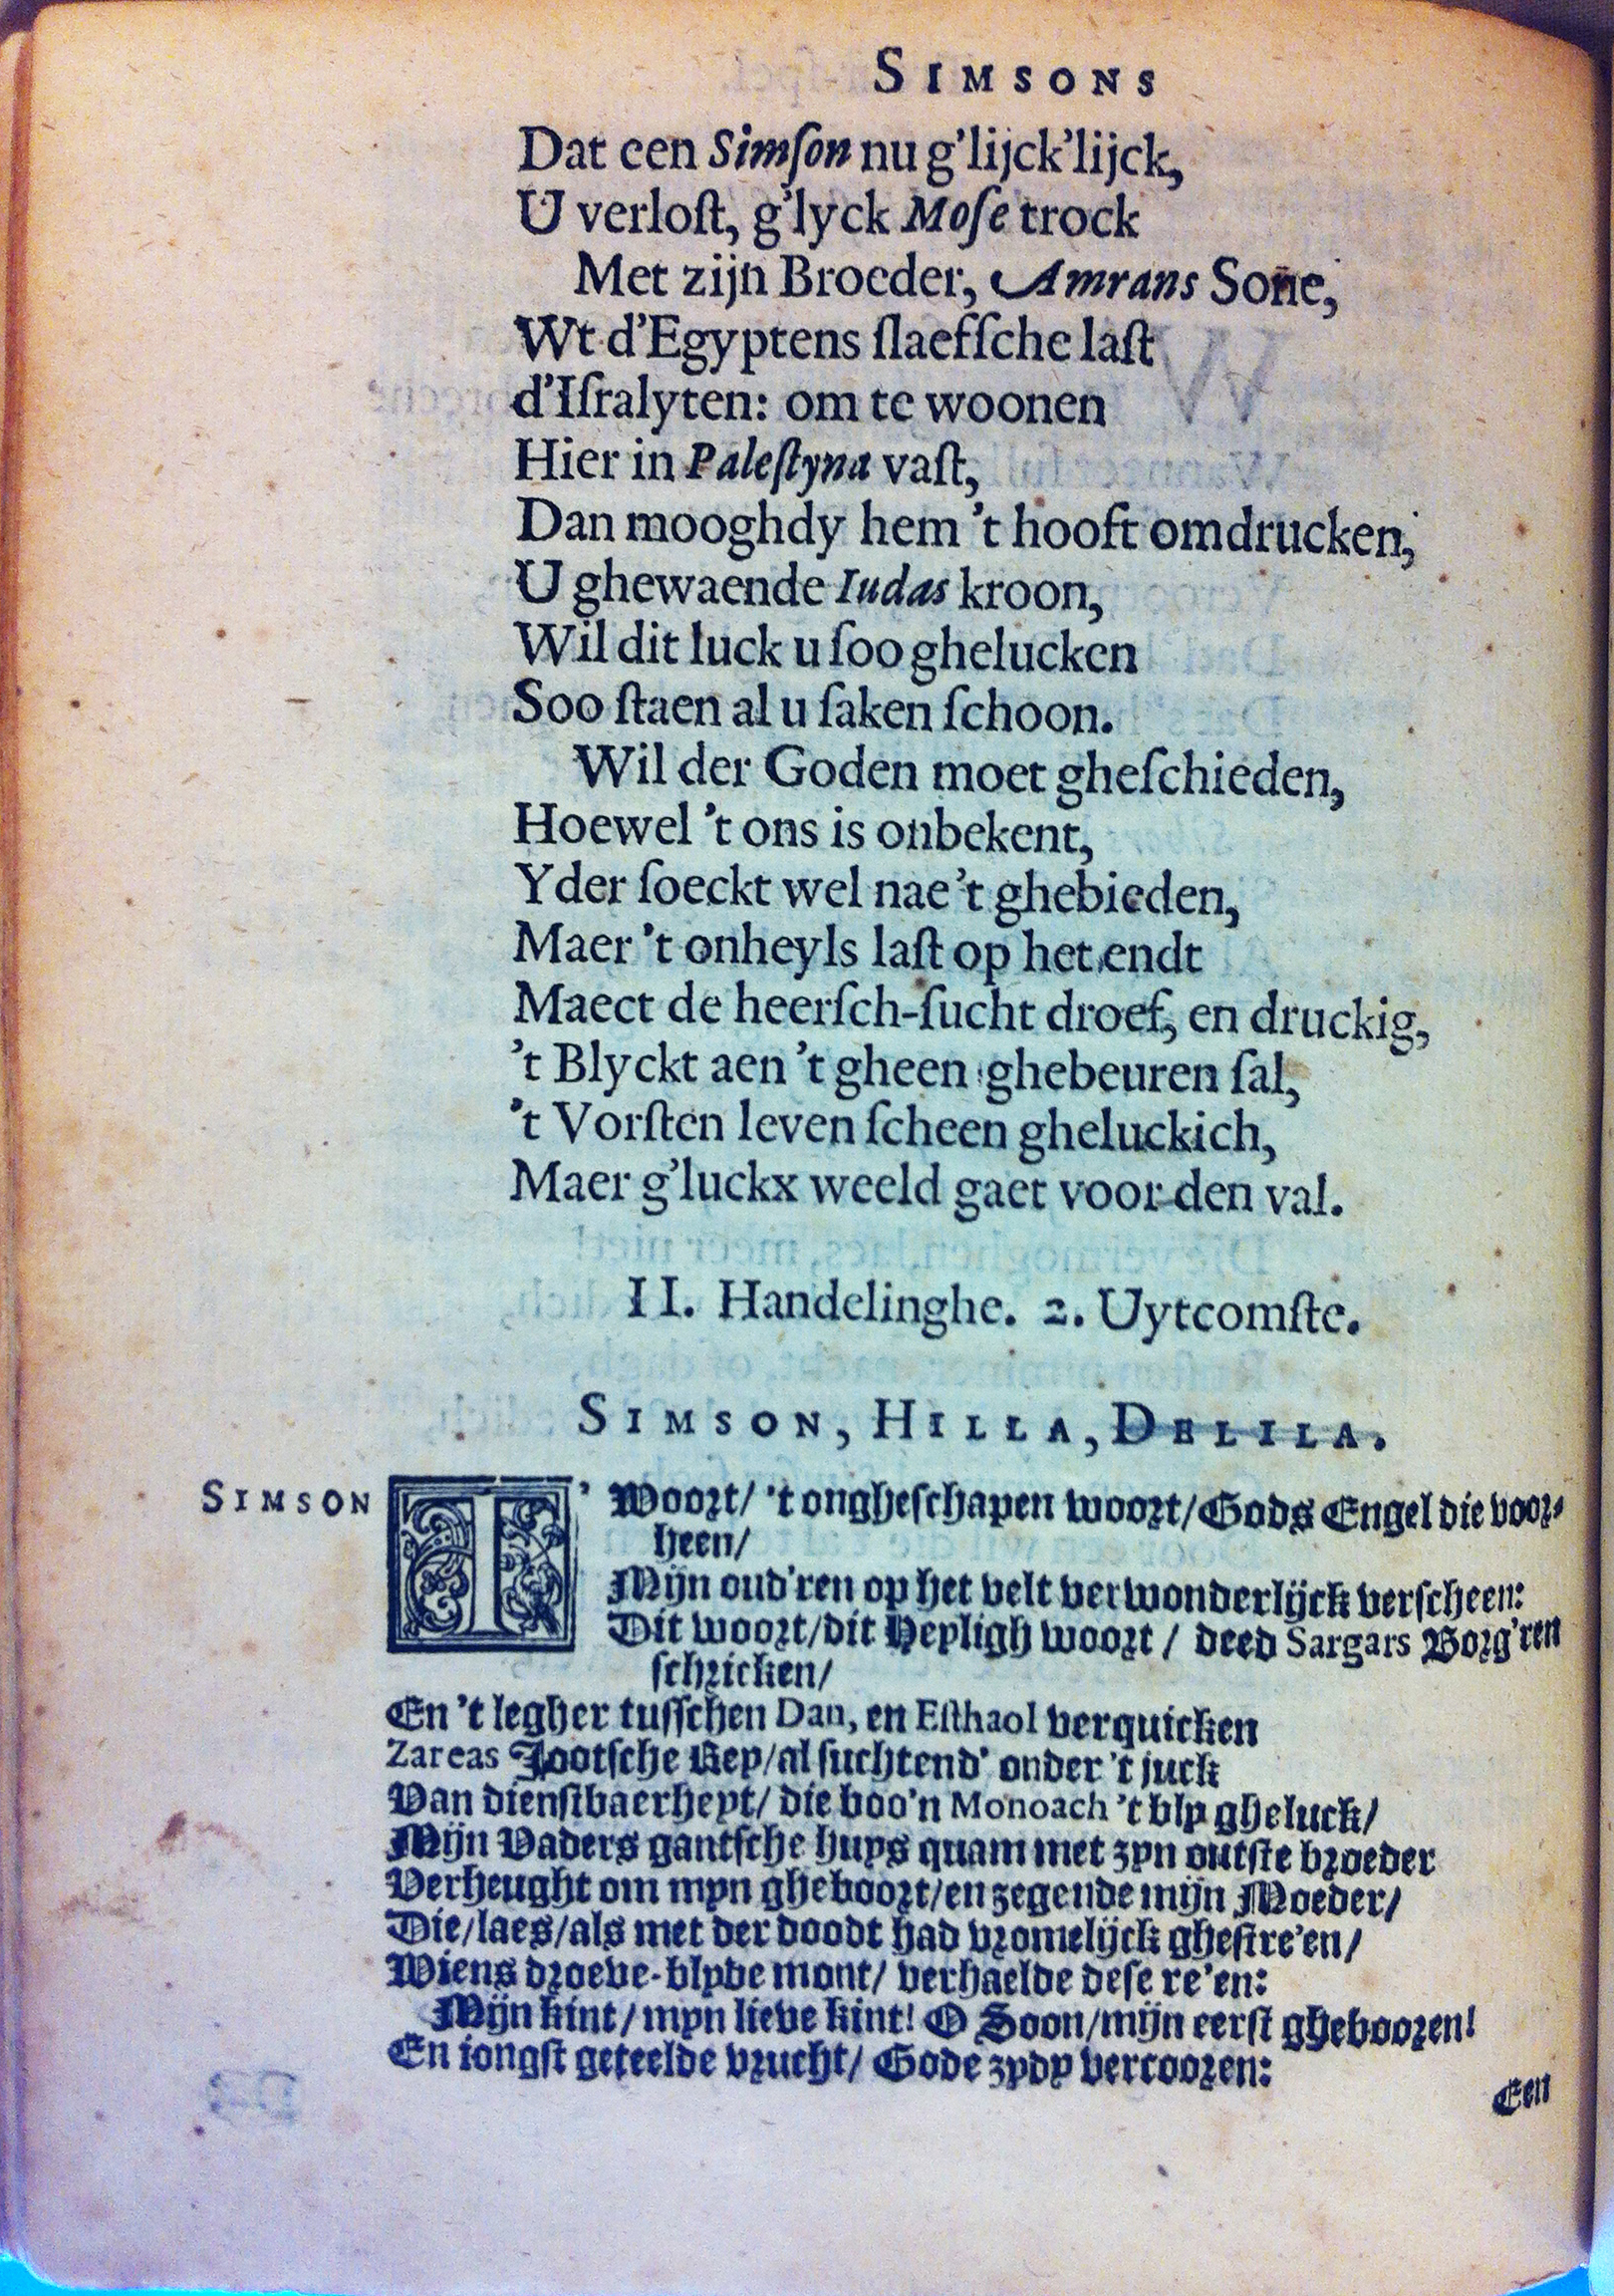 SIMSONS
Dat een Simſon nu g'lijck'lijck,
U verloſt, g'lyck Moſe trock
Met zijn Broeder, Amrans Sone,
Wt d'Egyptens ſlaefſche laſt
d'Iſralyten: om te woonen
Hier in Paleſtyna vaſt,
Dan mooghdy hem 't hooft omdrucken,
U ghewaende Iudas kroon,
Wil dit luck u ſoo ghelucken
Soo ſtaen al u ſaken ſchoon.
Wil der Goden moet gheſchieden,
Hoewel 't ons is onbekent,
Yder ſoeckt wel nae 't ghebieden,
Maer 't onheyls laſt op het endt
Maect de heerſch-ſucht droef, en druckig,
't Blyckt aen 't gheen ghebeuren ſal,
't Vorſten leven ſcheen gheluckich,
Maer g'luckx weeld gaet voor den val.
II. Handelinghe. 2. Uytcomſte.
SIMSON, HILLA, DELILA.
SIMSON T' Woort/ 't ongheſchapen woort/ Gods Engel die voor-
heen/
Mijn oud'ren op het velt verwonderlijck verſcheen:
Dit woort/ dit Heyligh woort / deed Sargars Borg'ren
ſchricken/
En 't legher tuſſchen Dan, en Eſthaol verquicken
Zareas Jootſche Rey/ al ſuchtend' onder 't juck
Van dienſtbaerheyt/ die boo'n Monoach 't bly gheluck/
Mijn Vaders gantſche huys quam met zyn outſte broeder
Verheught om myn gheboort/ en zegende mijn Moeder/
Die/ laes/ als met der doodt had vromelijck gheſtre'en/
Wiens droeve-blyde mont/ verhaelde deſe re'en:
Mijn kint/ myn lieve kint! O Soon/ mijn eerſt gheboozen!
En iongſt geteelde vrucht/ Gode zydy vercooren:
Een